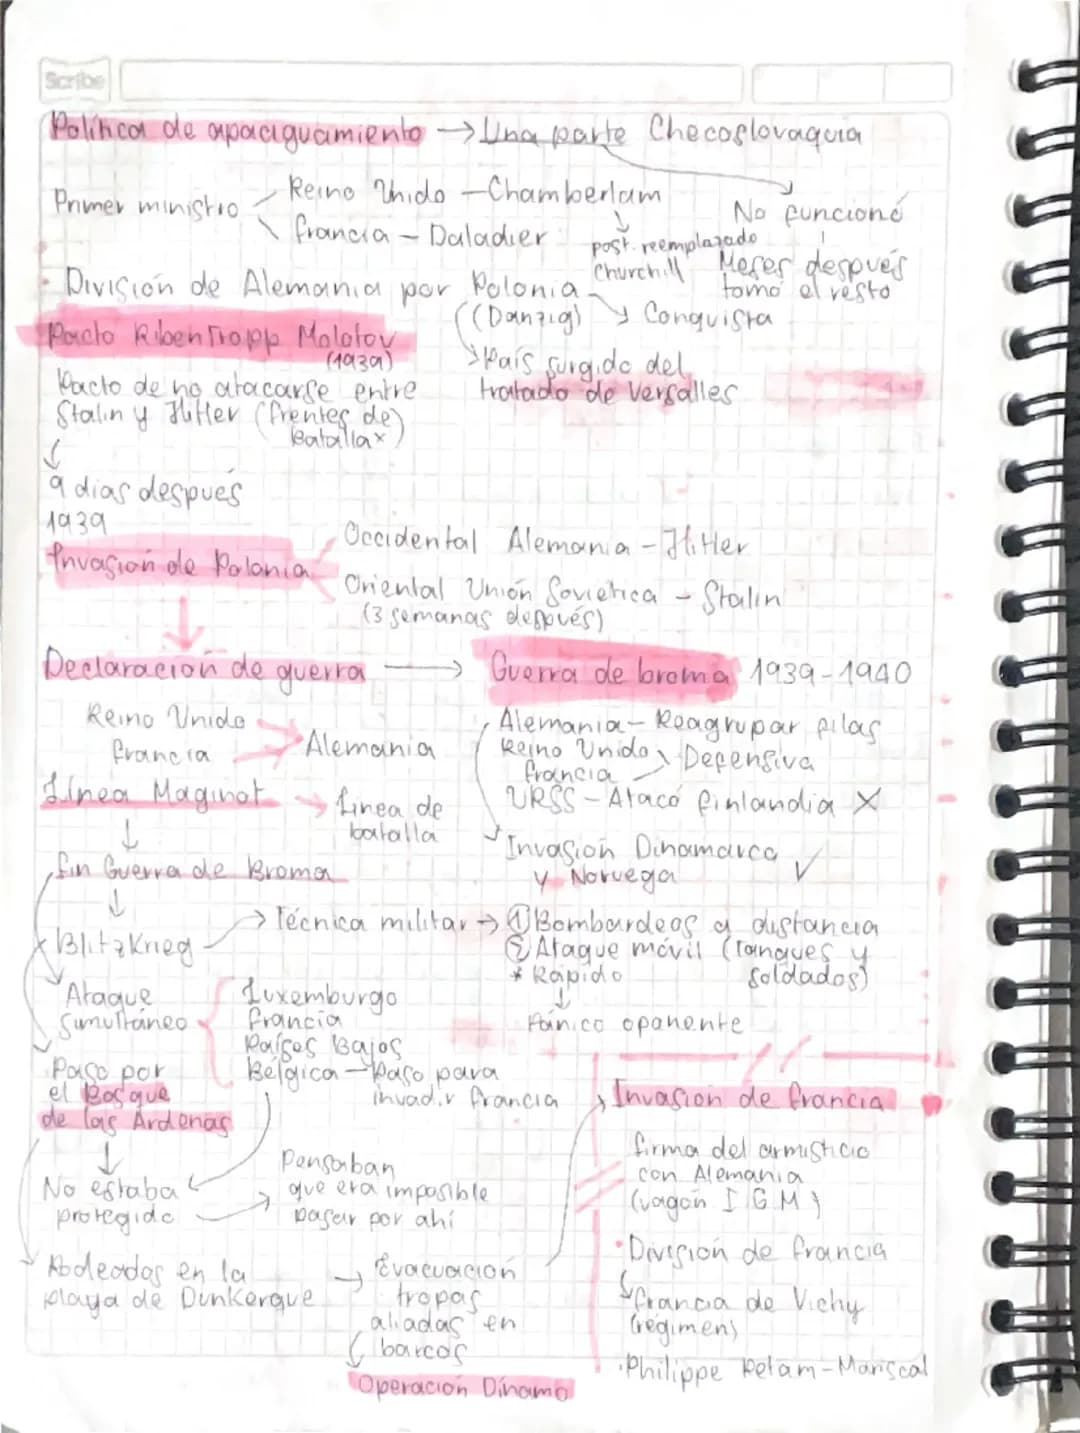 Scribe
Política de apaciguamiento → Una parte Checoslovaquia
Primer ministro
Reino Unido - Chamberlam
Francia - Daladier
post. reemplazado
Churchill
No funcionó
Meses después
tomó el resto
División de Alemania por Polonia
(Danzig)
Conquista
País surgido del
tratado de Versalles
Pacto Ribentropp Molotov
(1939)
Pacto de no atacarse entre
Stalin y Hitler (frentes de
batalla x)
9 dias después
1939
Invasión de Polonia
Occidental Alemania - Hitler
Oriental Unión Soviética - Stalin
(3 semanas después)
Declaración de guerra → Guerra de broma 1939-1940
Reino Unido
Francia
Alemania
Alemania - Reagrupar filas
Reino Unido
Francia
Defensiva
URSS - Atacó Finlandia X
Invasión Dinamarca
y Noruega ✓
Línea Maginot → Línea de
batalla
Fin Guerra de Broma
Blitzkrieg → Técnica militar → ① Bombardeos a distancia
② Ataque móvil (Tanques y
soldados)
* Rápido
↓
Pánico oponente
Ataque
simultáneo
Luxemburgo
Francia
Países Bajos
Bélgica - Paso para
invadir Francia
Paso por
el Bosque
de las Ardenas
↓
No estaba
protegido
Pensaban
que era imposible
pasar por ahí
Rodeados en la
playa de Dunkerque
→ Evacuación
tropas
aliadas en
barcos
Operación Dínamo
Invasion de Francia
firma del armisticio
con Alemania
(vagón I G M)
· División de Francia
Francia de Vichy
(régimen)
· Philippe Petam - Mariscal